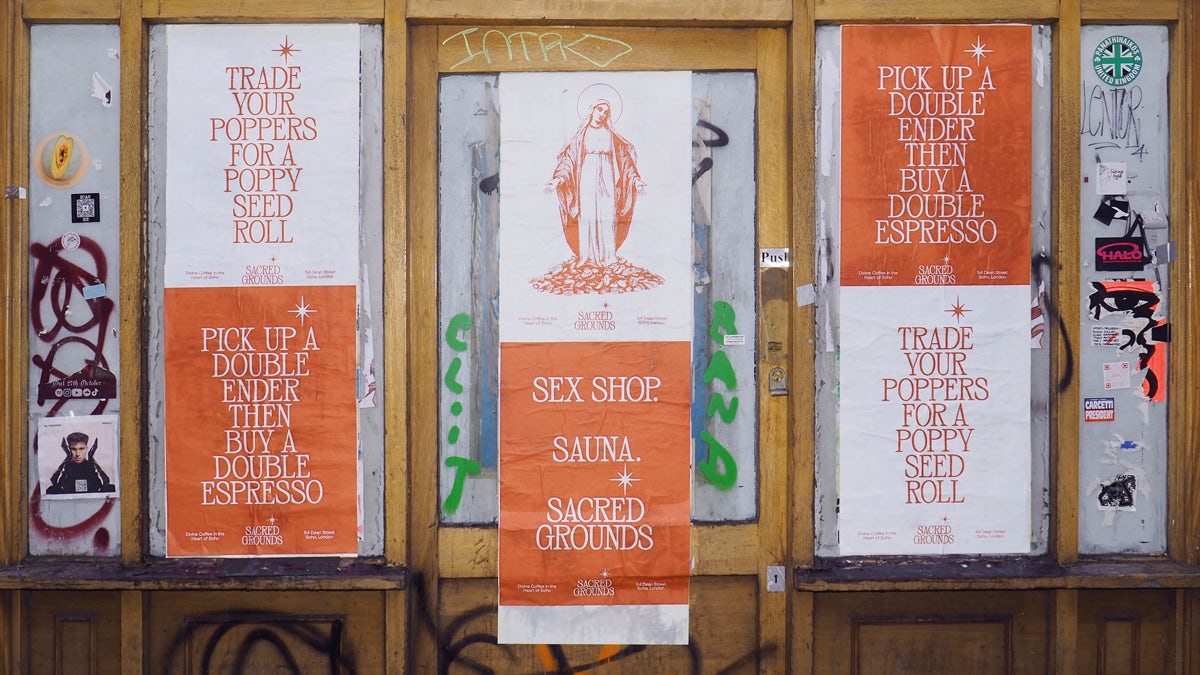 TRADE
YOUR
POPPERS
FOR A
POPPY
SEED
ROLL
Divine Coffee in the
Heart of Soho
SACRED
GROUNDS
54 Dean Street
Soho, London
PICK UP A
DOUBLE
ENDER
THEN
BUY A
DOUBLE
ESPRESSO
Divine Coffee in the
Heart of Soho
SACRED
GROUNDS
54 Dean Street
Soho, London
Out 27th October
Divine Coffee in the
Heart of Soho
SACRED
GROUNDS
54 Dean Street
Soho, London
SEX SHOP.
SAUNA.
SACRED
GROUNDS
Divine Coffee in the
Heart of Soho
SACRED
GROUNDS
54 Dean Street
Soho, London
CLiT
BAND
Push
PICK UP A
DOUBLE
ENDER
THEN
BUY A
DOUBLE
ESPRESSO
Divine Coffee in the
Heart of Soho
SACRED
GROUNDS
54 Dean Street
Soho, London
TRADE
YOUR
POPPERS
FOR A
POPPY
SEED
ROLL
Divine Coffee in the
Heart of Soho
SACRED
GROUNDS
54 Dean Street
Soho, London
PANATHINAIKOS
UNITED KINGDOM
HALO
CARCETTI
PRESIDENT